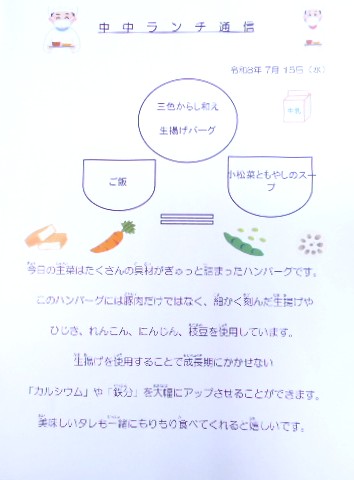 中中ランチ通信
令和8年7月15日(水)
三色からし和え
生揚げバーグ
牛乳
ご飯
小松菜ともやしのスー
プ
今日の主菜はたくさんの具材がぎゅっと詰まったハンバーグです。
このハンバーグには豚肉だけではなく、細かく刻んだ生揚げや
ひじき、れんこん、にんじん、枝豆を使用しています。
生揚げを使用することで成長期にかかせない
「カルシウム」や「鉄分」を大幅にアップさせることができます。
美味しいタレも一緒にもりもり食べてくれると嬉しいです。